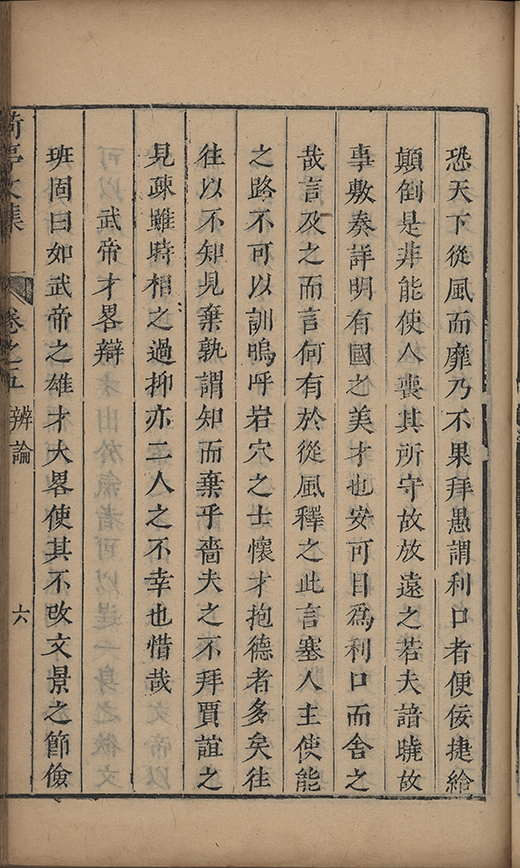 恐天下從風而靡乃不果拜愚謂利口者便佞捷給
顛倒是非能使人喪其所守故放遠之若夫諳曉故
事敷奏詳明有國之美才也安可目爲利口而舍之
哉言及之而言何有於從風釋之此言塞人主使能
之路不可以訓嗚呼岩穴之士懷才抱德者多矣往
往以不知見棄孰謂知而棄乎嗇夫之不拜賈誼之
見疎雖時相之過抑亦二人之不幸也惜哉
武帝才畧辯
班固曰如武帝之雄才大畧使其不改文景之節儉
亭文集 卷之五 辨論 六